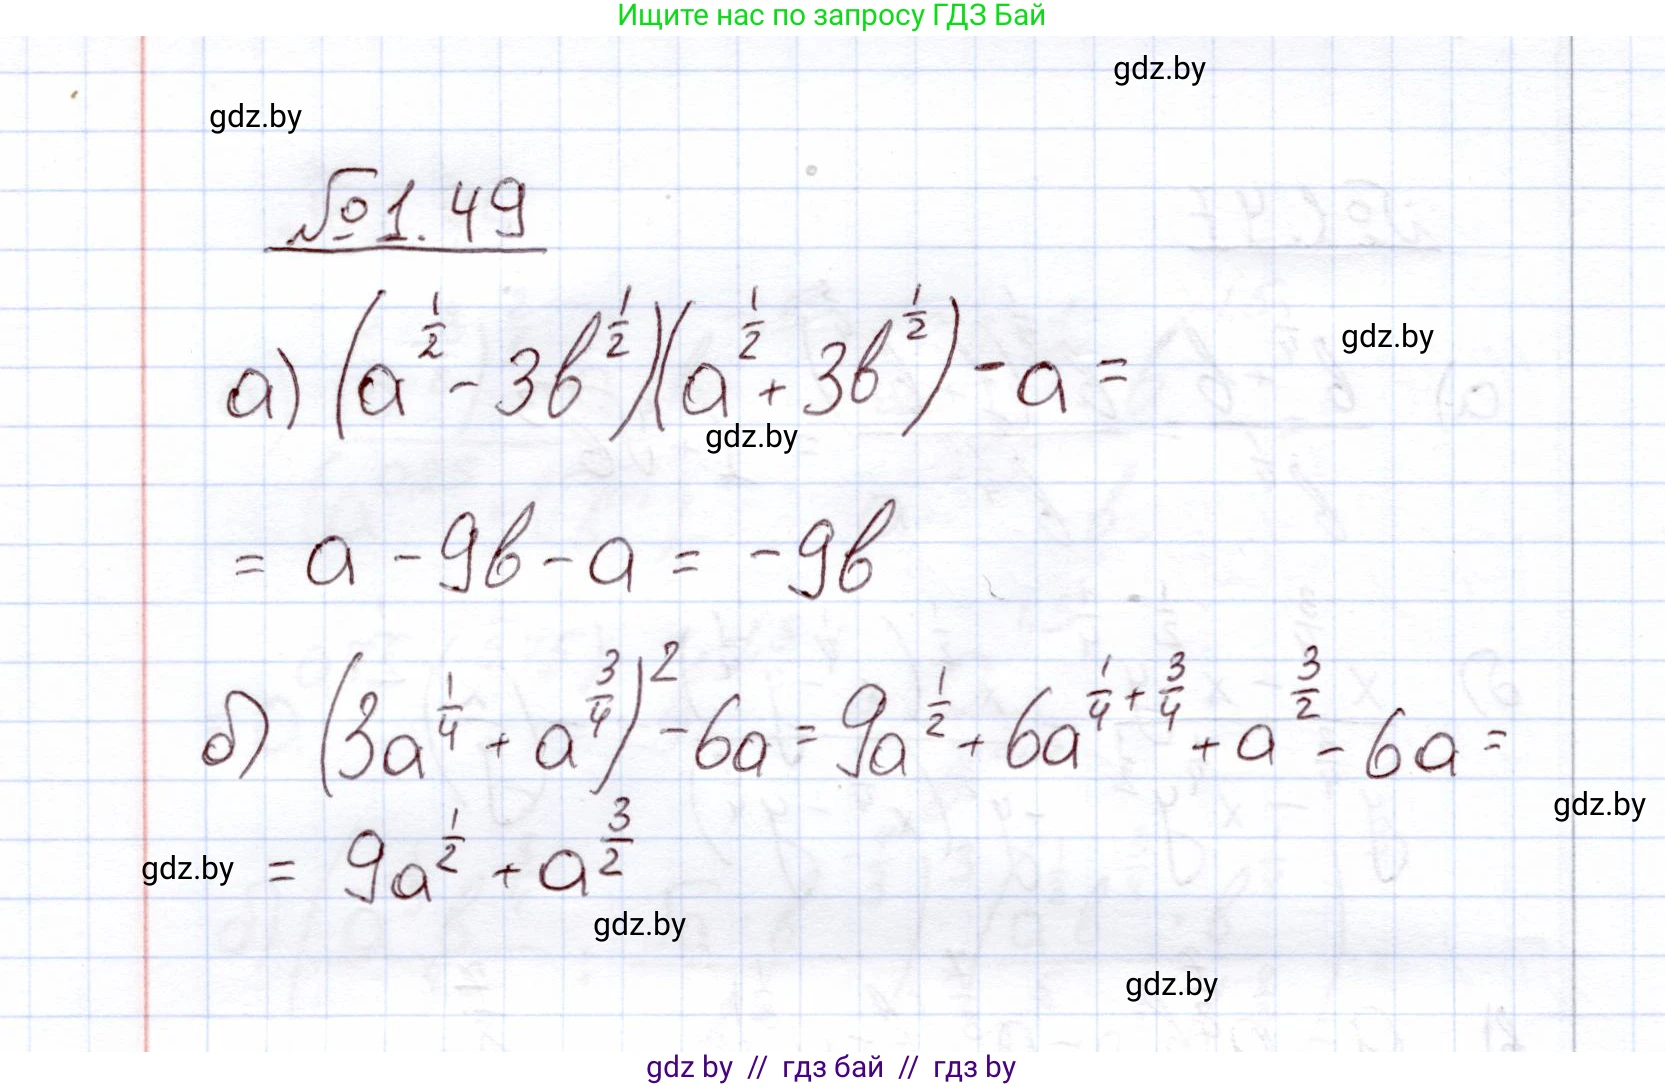 Ищите нас по запросу ГДЗ Бай
gdz.by
gdz.by
№1.49
а) (a^{1/2} - 3b^{1/2})(a^{1/2} + 3b^{1/2}) - a =
gdz.by
gdz.by
= a - 9b - a = -9b
б) (3a^{1/4} + a^{3/4})^2 - 6a = 9a^{1/2} + 6a^{1/4 + 3/4} + a^{3/2} - 6a =
gdz.by
gdz.by
= 9a^{1/2} + a^{3/2}
gdz.by
gdz.by
gdz by // гдз бай // гдз by